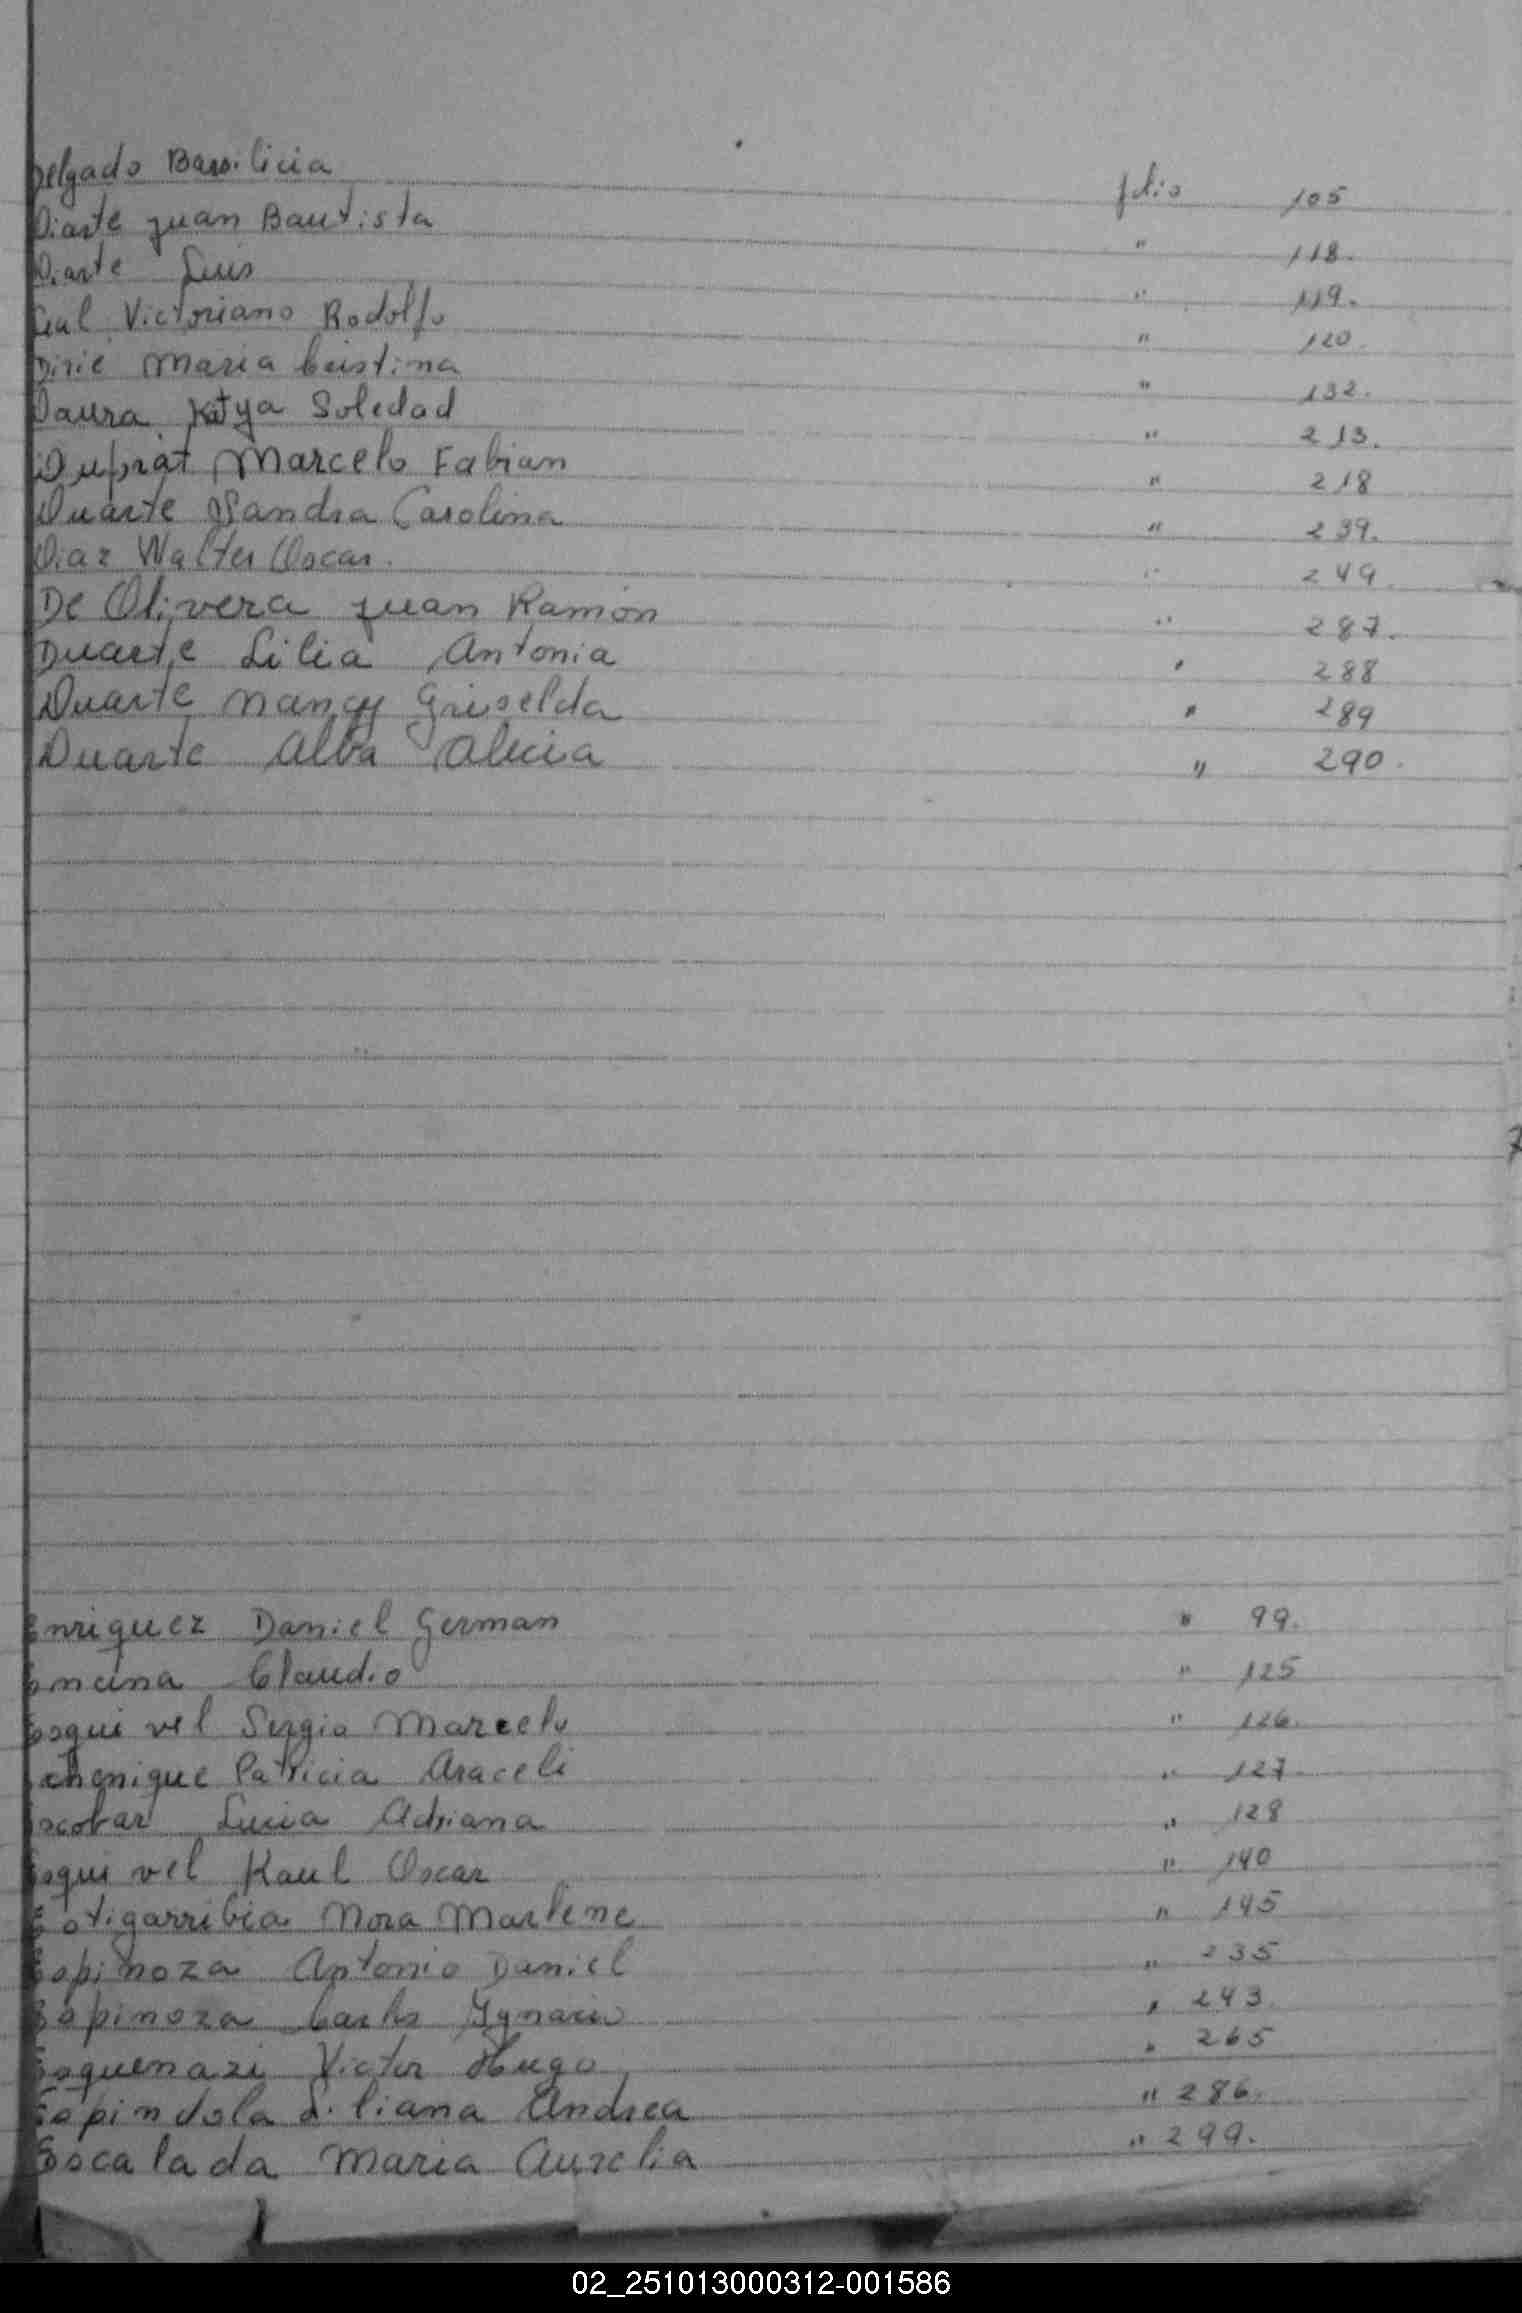 Delgado Bassilicia folio 105
Diarte Juan Bautista " 118.
Diarte Luis " 119.
Victoriano Rodolfo " 120.
Dirie Maria Cristina " 132.
Daura Katya Soledad " 213.
Duprat Marcelo Fabian " 218
Duarte Sandra Carolina " 239.
Diaz Walter Oscar. " 249.
De Olivera Juan Ramón " 287.
Duarte Lilia Antonia " 288
Duarte Nancy Griselda " 289
Duarte Alba Alicia " 290.
Enriquez Daniel German " 99.
Encina Claudio " 125
Esquivel Sergio Marcelo " 126.
Echenique Patricia Araceli " 127.
Escobar Lucia Adriana " 128
Esquivel Raul Oscar " 140
Estigarribia Nora Marlene " 145
Espinoza Antonio Daniel " 235
Espinoza Carlos Ygnacio " 243.
Esquenazi Victor Hugo " 265
Espindola Liliana Andrea " 286.
Escalada Maria Aurelia " 299.
02_251013000312-001586